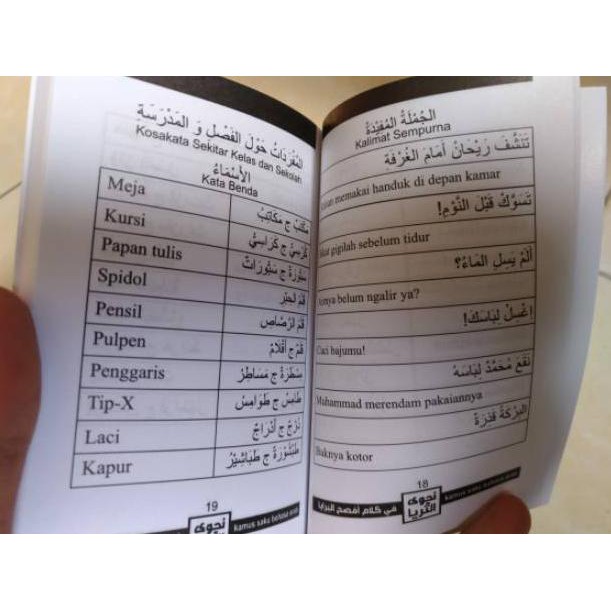 الجُمْلَةُ المُفِيْدَةُ
Kalimat Sempurna
تَنَشَّفَ رَيْحَانُ أَمَامَ الغُرْفَةِ
memakai handuk di depan kamar
تَسَوَّكْ قَبْلَ النَّوْمِ!
gigilah sebelum tidur
أَلَمْ يَسِلِ المَاءُ؟
belum ngalir ya?
اِغْسِلْ لِبَاسَكَ!
Cuci bajumu!
نَقَعَ مُحَمَّدٌ لِبَاسَهُ
Muhammad merendam pakaiannya
البِرْكَةُ قَذِرَةٌ
Baknya kotor
18
في كلام أفصح البرايا
نجوى الثريا
kamus saku
المُفْرَدَاتُ حَوْلَ الفَصْلِ وَ المَدْرَسَةِ
Kosakata Sekitar Kelas dan Sekolah
الأَسْمَاءُ
Kata Benda
Meja مَكْتَبٌ ج مَكَاتِبُ
Kursi كُرْسِيٌّ ج كَرَاسِيُّ
Papan tulis سَبُّوْرَةٌ ج سَبُّوْرَاتٌ
Spidol قَلَمُ الحِبْرِ
Pensil قَلَمُ الرَّصَّاصِ
Pulpen قَلَمٌ ج أَقْلَامٌ
Penggaris مِسْطَرَةٌ ج مَسَاطِرُ
Tip-X طَامِسٌ ج طَوَامِسُ
Laci دُرْجٌ ج أَدْرَاجٌ
Kapur طَبْشُوْرَةٌ ج طَبَاشِيْرُ
19
نجوى
kamus saku bahasa arab